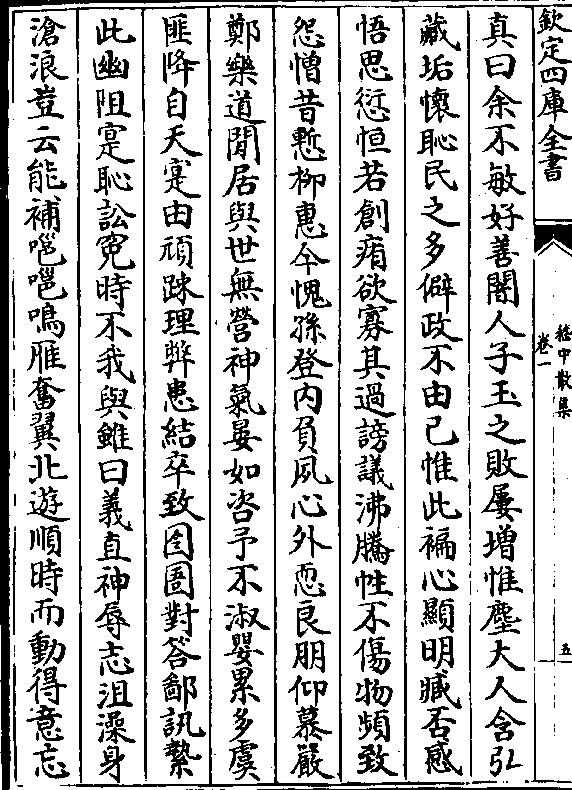 欽定四庫全書
嵇中散集
卷一
五
真曰余不敏好善闇人子玉之敗屢增惟塵大人含弘
藏垢懷恥民之多僻政不由己惟此褊心顯明臧否感
悟思愆恒若創痏欲寡其過謗議沸騰性不傷物頻致
怨憎昔慙柳惠今愧孫登内負夙心外恧良朋仰慕嚴
鄭樂道閒居與世無營神氣晏如咨予不淑嬰累多虞
匪降自天寔由頑疎理弊患結卒致囹圄對答鄙訊縶
此幽阻寔恥訟寃時不我與雖曰義直神辱志沮澡身
滄浪豈云能補嗈嗈鳴雁奮翼北遊順時而動得意忘